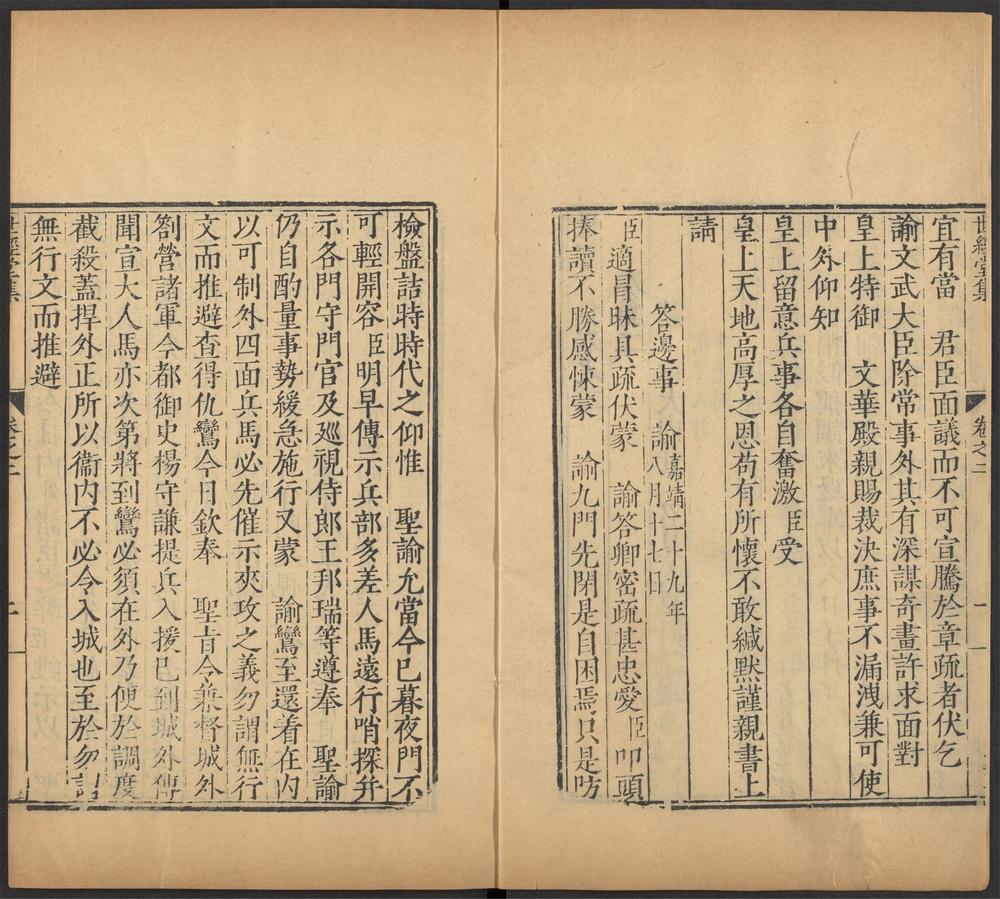 世經堂集
卷之二
宜有當　君臣面議而不可宣騰於章疏者伏乞
諭文武大臣除常事外其有深謀奇畫許求面對
皇上特御　文華殿親賜裁決庶事不漏洩兼可使
中外仰知
皇上留意兵事各自奮激臣受
皇上天地高厚之恩苟有所懷不敢緘默謹親書上
請
答邊事　諭嘉靖二十九年
八月十七日
臣適冒昧具疏伏蒙　諭答卿密疏甚忠愛臣叩頭
捧讀不勝感悚蒙　諭九門先閉是自困焉只是防
檢盤詰時時代之仰惟　聖諭允當今已暮夜門不
可輕開容臣明早傳示兵部多差人馬遠行哨探并
示各門守門官及廵視侍郎王邦瑞等遵奉　聖諭
仍自酌量事勢緩急施行又蒙　諭鸞至還着在內
以可制外四面兵馬必先催示夾攻之義勿謂無行
文而推避查得仇鸞今日欽奉　聖旨令兼督城外
劄營諸軍今都御史楊守謙提兵入援已到城外傳
聞宣大人馬亦次第將到鸞必須在外乃便於調度
截殺蓋捍外正所以衞內不必令入城也至於勿謂
無行文而推避
世經堂集
卷之二
二